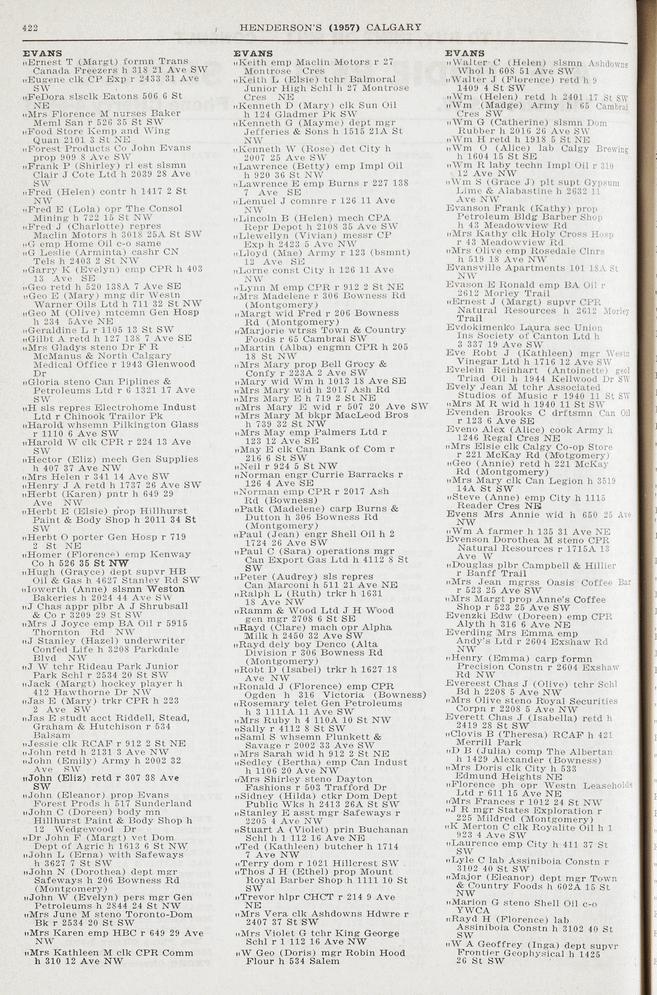 422
HENDERSON'S (1957) CALGARY
EVANS
„Ernest T (Margt) formn Trans
Canada Freezers h 318 21 Ave SW
„Eugene clk CP Exp r 2433 31 Ave
SW
„FeDora slsclk Eatons 506 6 St
NE
„Mrs Florence M nurses Baker
Meml San r 526 35 St SW
„Food Store Kemp and Wing
Quan 2101 3 St NE
„Forest Products Co John Evans
prop 909 8 Ave SW
„Frank P (Shirley) rl est slsmn
Clair J Cote Ltd h 2039 28 Ave
SW
„Fred (Helen) contr h 1417 2 St
NW
„Fred E (Lola) opr The Consol
Mining h 722 15 St NW
„Fred J (Charlotte) repres
Maclin Motors h 3018 25A St SW
„G emp Home Oil c-o same
„G Leslie (Arminta) cashr CN
Tels h 2403 2 St NW
„Garry K (Evelyn) emp CPR h 403
13 Ave SE
„Geo retd h 520 138A 7 Ave SE
„Geo E (Mary) mng dir Westn
Warner Oils Ltd h 711 32 St NW
„Geo M (Olive) mtcemn Gen Hosp
h 234 5Ave NE
„Geraldine L r 1105 13 St SW
„Gilbt A retd h 127 138 7 Ave SE
„Mrs Gladys steno Dr F R
McManus & North Calgary
Medical Office r 1943 Glenwood
Dr
„Gloria steno Can Piplines &
Petroleums Ltd r 6 1321 17 Ave
SW
„H sls repres Electrohome Indust
Ltd r Chinook Trailor Pk
„Harold whsemn Pilkington Glass
r 1110 6 Ave SW
„Harold W clk CPR r 224 13 Ave
SW
„Hector (Eliz) mech Gen Supplies
h 407 37 Ave NW
„Mrs Helen r 341 14 Ave SW
„Henry J A retd h 1737 26 Ave SW
„Herbt (Karen) pntr h 649 29
Ave NW
„Herbt E (Elsie) prop Hillhurst
Paint & Body Shop h 2011 34 St
SW
„Herbt O porter Gen Hosp r 719
2 St NE
„Homer (Florence) emp Kenway
Co h 526 35 St NW
„Hugh (Grayce) dept supvr HB
Oil & Gas h 4627 Stanley Rd SW
„Iowerth (Anne) slsmn Weston
Bakeries h 2024 44 Ave SW
„J Chas appr plbr A J Shrubsall
& Co r 3209 29 St SW
„Mrs J Joyce emp BA Oil r 5915
Thornton Rd NW
„J Stanley (Hazel) underwriter
Confed Life h 3208 Parkdale
Blvd NW
„J W tchr Rideau Park Junior
Park Schl r 2534 20 St SW
„Jack (Margt) hockey player h
412 Hawthorne Dr NW
„Jas E (Mary) trkr CPR h 223
2 Ave SW
„Jas E studt acct Riddell, Stead,
Graham & Hutchison r 534
Balsam
„Jessie clk RCAF r 912 2 St NE
„John retd h 2131 3 Ave NW
„John (Emily) Army h 2002 32
Ave SW
„John (Eliz) retd r 307 38 Ave
SW
„John (Eleanor) prop Evans
Forest Prods h 517 Sunderland
„John C (Doreen) body mn
Hillhurst Paint & Body Shop h
12 Wedgewood Dr
„Dr John F (Margt) vet Dom
Dept of Agric h 1613 6 St NW
„John L (Erna) with Safeways
h 3627 7 St SW
„John N (Dorothea) dept mgr
Safeways h 206 Bowness Rd
(Montgomery)
„John W (Evelyn) pers mgr Gen
Petroleums h 2844 24 St NW
„Mrs June M steno Toronto-Dom
Bk r 2534 20 St SW
„Mrs Karen emp HBC r 649 29 Ave
NW
„Mrs Kathleen M clk CPR Comm
h 310 12 Ave NW
EVANS
„Keith emp Maclin Motors r 27
Montrose Cres
„Keith L (Elsie) tchr Balmoral
Junior High Schl h 27 Montrose
Cres NE
„Kenneth D (Mary) clk Sun Oil
h 124 Gladmer Pk SW
„Kenneth G (Mayme) dept mgr
Jefferies & Sons h 1515 21A St
NW
„Kenneth W (Rose) det City h
2007 25 Ave SW
„Lawrence (Betty) emp Impl Oil
h 920 36 St NW
„Lawrence E emp Burns r 227 138
7 Ave SE
„Lemuel J comnre r 126 11 Ave
NW
„Lincoln B (Helen) mech CPA
Repr Depot h 2108 35 Ave SW
„Llewellyn (Vivian) messr CP
Exp h 2423 5 Ave NW
„Lloyd (Mae) Army r 123 (bsmnt)
12 Ave SE
„Lorne const City h 126 11 Ave
NW
„Lynn M emp CPR r 912 2 St NE
„Mrs Madelene r 306 Bowness Rd
(Montgomery)
„Margt wid Fred r 206 Bowness
Rd (Montgomery)
„Marjorie wtrss Town & Country
Foods r 65 Cambrai SW
„Martin (Alba) engmn CPR h 205
18 St NW
„Mrs Mary prop Bell Grocy &
Confy r 223A 2 Ave SW
„Mary wid Wm h 1013 18 Ave SE
„Mrs Mary wid h 2017 Ash Rd
„Mrs Mary E h 719 2 St NE
„Mrs Mary E wid r 507 20 Ave SW
„Mrs Mary M bkpr MacLeod Bros
h 739 32 St NW
„Mrs May emp Palmers Ltd r
123 12 Ave SE
„May E clk Can Bank of Com r
216 6 St SW
„Neil r 924 5 St NW
„Norman engr Currie Barracks r
126 4 Ave SE
„Norman emp CPR r 2017 Ash
Rd (Bowness)
„Patk (Madelene) carp Burns &
Dutton h 306 Bowness Rd
(Montgomery)
„Paul (Jean) engr Shell Oil h 2
1724 26 Ave SW
„Paul C (Sara) operations mgr
Can Export Gas Ltd h 4112 8 St
SW
„Peter (Audrey) sls repres
Can Marconi h 511 21 Ave NE
„Ralph L (Ruth) trkr h 1631
18 Ave NW
„Ramm & Wood Ltd J H Wood
gen mgr 2708 6 St SE
„Rayd (Clare) mach opr Alpha
Milk h 2450 32 Ave SW
„Rayd dely boy Denco (Alta
Division r 306 Bowness Rd
(Montgomery)
„Robt D (Isabel) trkr h 1627 18
Ave NW
„Ronald J (Florence) emp CPR
Ogden h 316 Victoria (Bowness)
„Rosemary telet Gen Petroleums
h 3 1111A 11 Ave SW
„Mrs Ruby h 4 110A 10 St NW
„Sally r 4112 8 St SW
„Saml S whsemn Plunkett &
Savage r 2002 33 Ave SW
„Mrs Sarah wid h 912 2 St NE
„Sedley (Bertha) emp Can Indust
h 1106 20 Ave NW
„Mrs Shirley steno Dayton
Fashions r 503 Trafford Dr
„Sidney (Hilda) ctkr Dom Dept
Public Wks h 2413 26A St SW
„Stanley E asst mgr Safeways r
2205 4 Ave NW
„Stuart A (Violet) prin Buchanan
Schl h 1 112 16 Ave NE
„Ted (Kathleen) butcher h 1714
7 Ave NW
„Terry dom r 1021 Hillcrest SW
„Thos J H (Ethel) prop Mount
Royal Barber Shop h 1111 10 St
SW
„Trevor hlpr CHCT r 214 9 Ave
NE
„Mrs Vera clk Ashdowns Hdwre r
2407 37 St SW
„Mrs Violet G tchr King George
Schl r 1 112 16 Ave NW
„W Geo (Doris) mgr Robin Hood
Flour h 534 Salem
EVANS
„Walter C (Helen) slsmn Ashdowns
Whol h 608 51 Ave SW
„Walter J (Florence) retd h 9
1409 4 St SW
„Wm (Helen) retd h 2401 17 St SW
„Wm (Madge) Army h 65 Cambrai
Cres SW
„Wm G (Catherine) slsmn Dom
Rubber h 2016 26 Ave SW
„Wm H retd h 1938 5 St NE
„Wm O (Alice) lab Calgy Brewing
h 1604 15 St SE
„Wm R laby techn Impl Oil r 310
12 Ave NW
„Wm S (Grace J) plt supt Gypsum
Lime & Alabastine h 2632 11
Ave NW
Evanson Frank (Kathy) prop
Petroleum Bldg Barber Shop
h 43 Meadowview Rd
„Mrs Kathy clk Holy Cross Hosp
r 43 Meadowview Rd
„Mrs Olive emp Rosedale Clnrs
h 519 18 Ave NW
Evansville Apartments 101 18A St
NW
Evason E Ronald emp BA Oil r
2612 Morley Trail
„Ernest J (Margt) supvr CPR
Natural Resources h 2612 Morley
Trail
Evdokimenko Laura sec Union
Ins Society of Canton Ltd h
3 337 19 Ave SW
Eve Robt J (Kathleen) mgr Westn
Vinegar Ltd h 1716 12 Ave SW
Evelein Reinhart (Antoinette) geol
Triad Oil h 1944 Kellwood Dr SW
Evely Jean M tchr Associated
Studios of Music r 1940 11 St SW
„Mrs M R wid h 1940 11 St SW
Evenden Brooks C drftsmn Can Oil
r 123 6 Ave SE
Eveno Alex (Alice) cook Army h
1246 Regal Cres NE
„Mrs Elsie clk Calgy Co-op Store
r 221 McKay Rd (Motgomery)
„Geo (Annie) retd h 221 McKay
Rd (Montgomery)
„Mrs Mary clk Can Legion h 3519
14A St SW
„Steve (Anne) emp City h 1115
Reader Cres NE
Evens Mrs Annie wid h 650 25 Ave
NW
„Wm A farmer h 135 31 Ave NE
Evenson Dorothea M steno CPR
Natural Resources r 1715A 13
Ave W
„Douglas plbr Campbell & Hillier
r Banff Trail
„Mrs Jean mgrss Oasis Coffee Bar
r 523 25 Ave SW
„Mrs Margt prop Anne's Coffee
Shop r 523 25 Ave SW
Evenzki Edw (Doreen) emp CPR
Alyth h 316 6 Ave NE
Everding Mrs Emma emp
Andy's Ltd r 2604 Exshaw Rd
NW
„Henry (Emma) carp formn
Precision Constn r 2604 Exshaw
Rd NW
Evereest Chas J (Olive) tchr Schl
Bd h 2208 5 Ave NW
„Mrs Olive steno Royal Securities
Corpn r 2208 5 Ave NW
Everett Chas J (Isabella) retd h
2419 28 St SW
„Clovis B (Theresa) RCAF h 421
Merrill Park
„D B (Julia) comp The Albertan
h 1429 Alexander (Bowness)
„Mrs Doris clk City h 533
Edmund Heights NE
„Florence ph opr Westn Leaseholds
Ltd r 611 15 Ave NE
„Mrs Frances r 1012 24 St NW
„J R mgr States Exploration r
225 Mildred (Montgomery)
„K Merton C clk Royalite Oil h 1
923 4 Ave SW
„Laurence emp City h 411 37 St
SW
„Lyle C lab Assiniboia Constn r
3102 40 St SW
„Major (Eleanor) dept mgr Town
& Country Foods h 602A 15 St
NW
„Marion G steno Shell Oil c-o
YWCA
„Rayd H (Florence) lab
Assiniboia Constn h 3102 40 St
SW
„W A Geoffrey (Inga) dept supvr
Frontier Geophysical h 1425
26 St SW